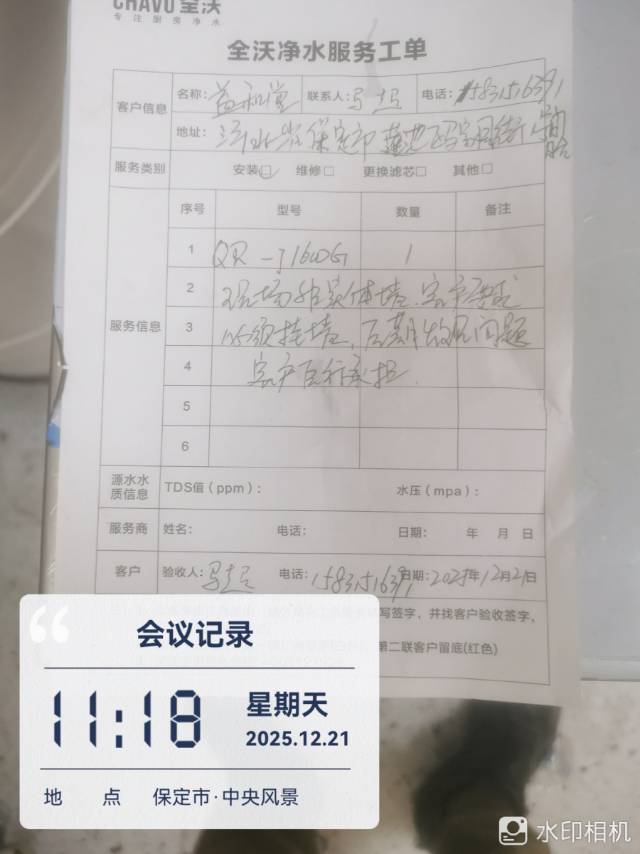 CHAVO 全沃
专注厨房净水
全沃净水服务工单
客户信息
名称: 益和堂 联系人: 马超 电话:
地址: 河北省保定市莲池
服务类别 安装 维修 更换滤芯 其他
服务信息
序号 型号 数量 备注
1 QR-J1600G 1
2 现场非实体墙,客户要求
3 必须挂墙,后期出现问题
4 客户自行承担.
5
6
源水水质信息 TDS值(ppm): 水压(mpa):
服务商 姓名: 电话: 日期: 年 月 日
客户 验收人: 马超 电话: 日期: 2025年12月21日
写签字,并找客户验收签字,
第二联客户留底(红色)
会议记录
11:18
星期天
2025.12.21
地 点 保定市·中央风景
水印相机